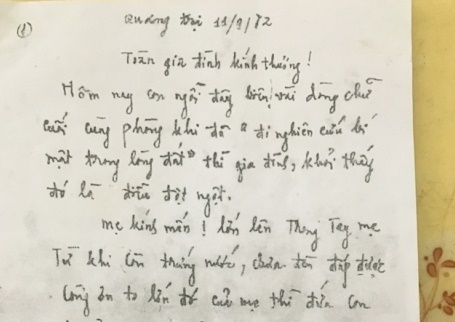 (1)
Quảng Trị 11/9/72
Toàn gia đình kính thương!
Hôm nay con ngồi đây biên vài dòng chữ
cuối cùng phòng khi đã " đi nghiên cứu bí
mật trong lòng đất" thì gia đình, khỏi thấy
đó là điều đột ngột.
Mẹ kính mến! lớn lên Trong Tay mẹ
Từ khi còn trứng nước, chưa đền đáp được
Công ơn to lớn đó của mẹ thì đứa con